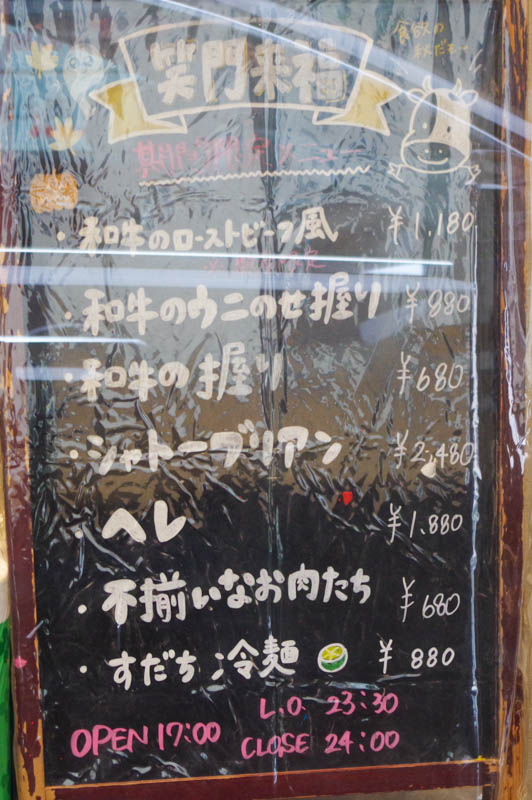 食欲の
秋だぁ〜
笑門来福
期間限定メニュー
・和牛のローストビーフ風 ¥1,180
・和牛のウニのせ握り ¥980
・和牛の握り ¥680
・シャトーブリアン ¥2,480
・ヘレ ¥1,880
・不揃いなお肉たち ¥680
・すだち冷麺 ¥880
L.O. 23:30
OPEN 17:00 CLOSE 24:00